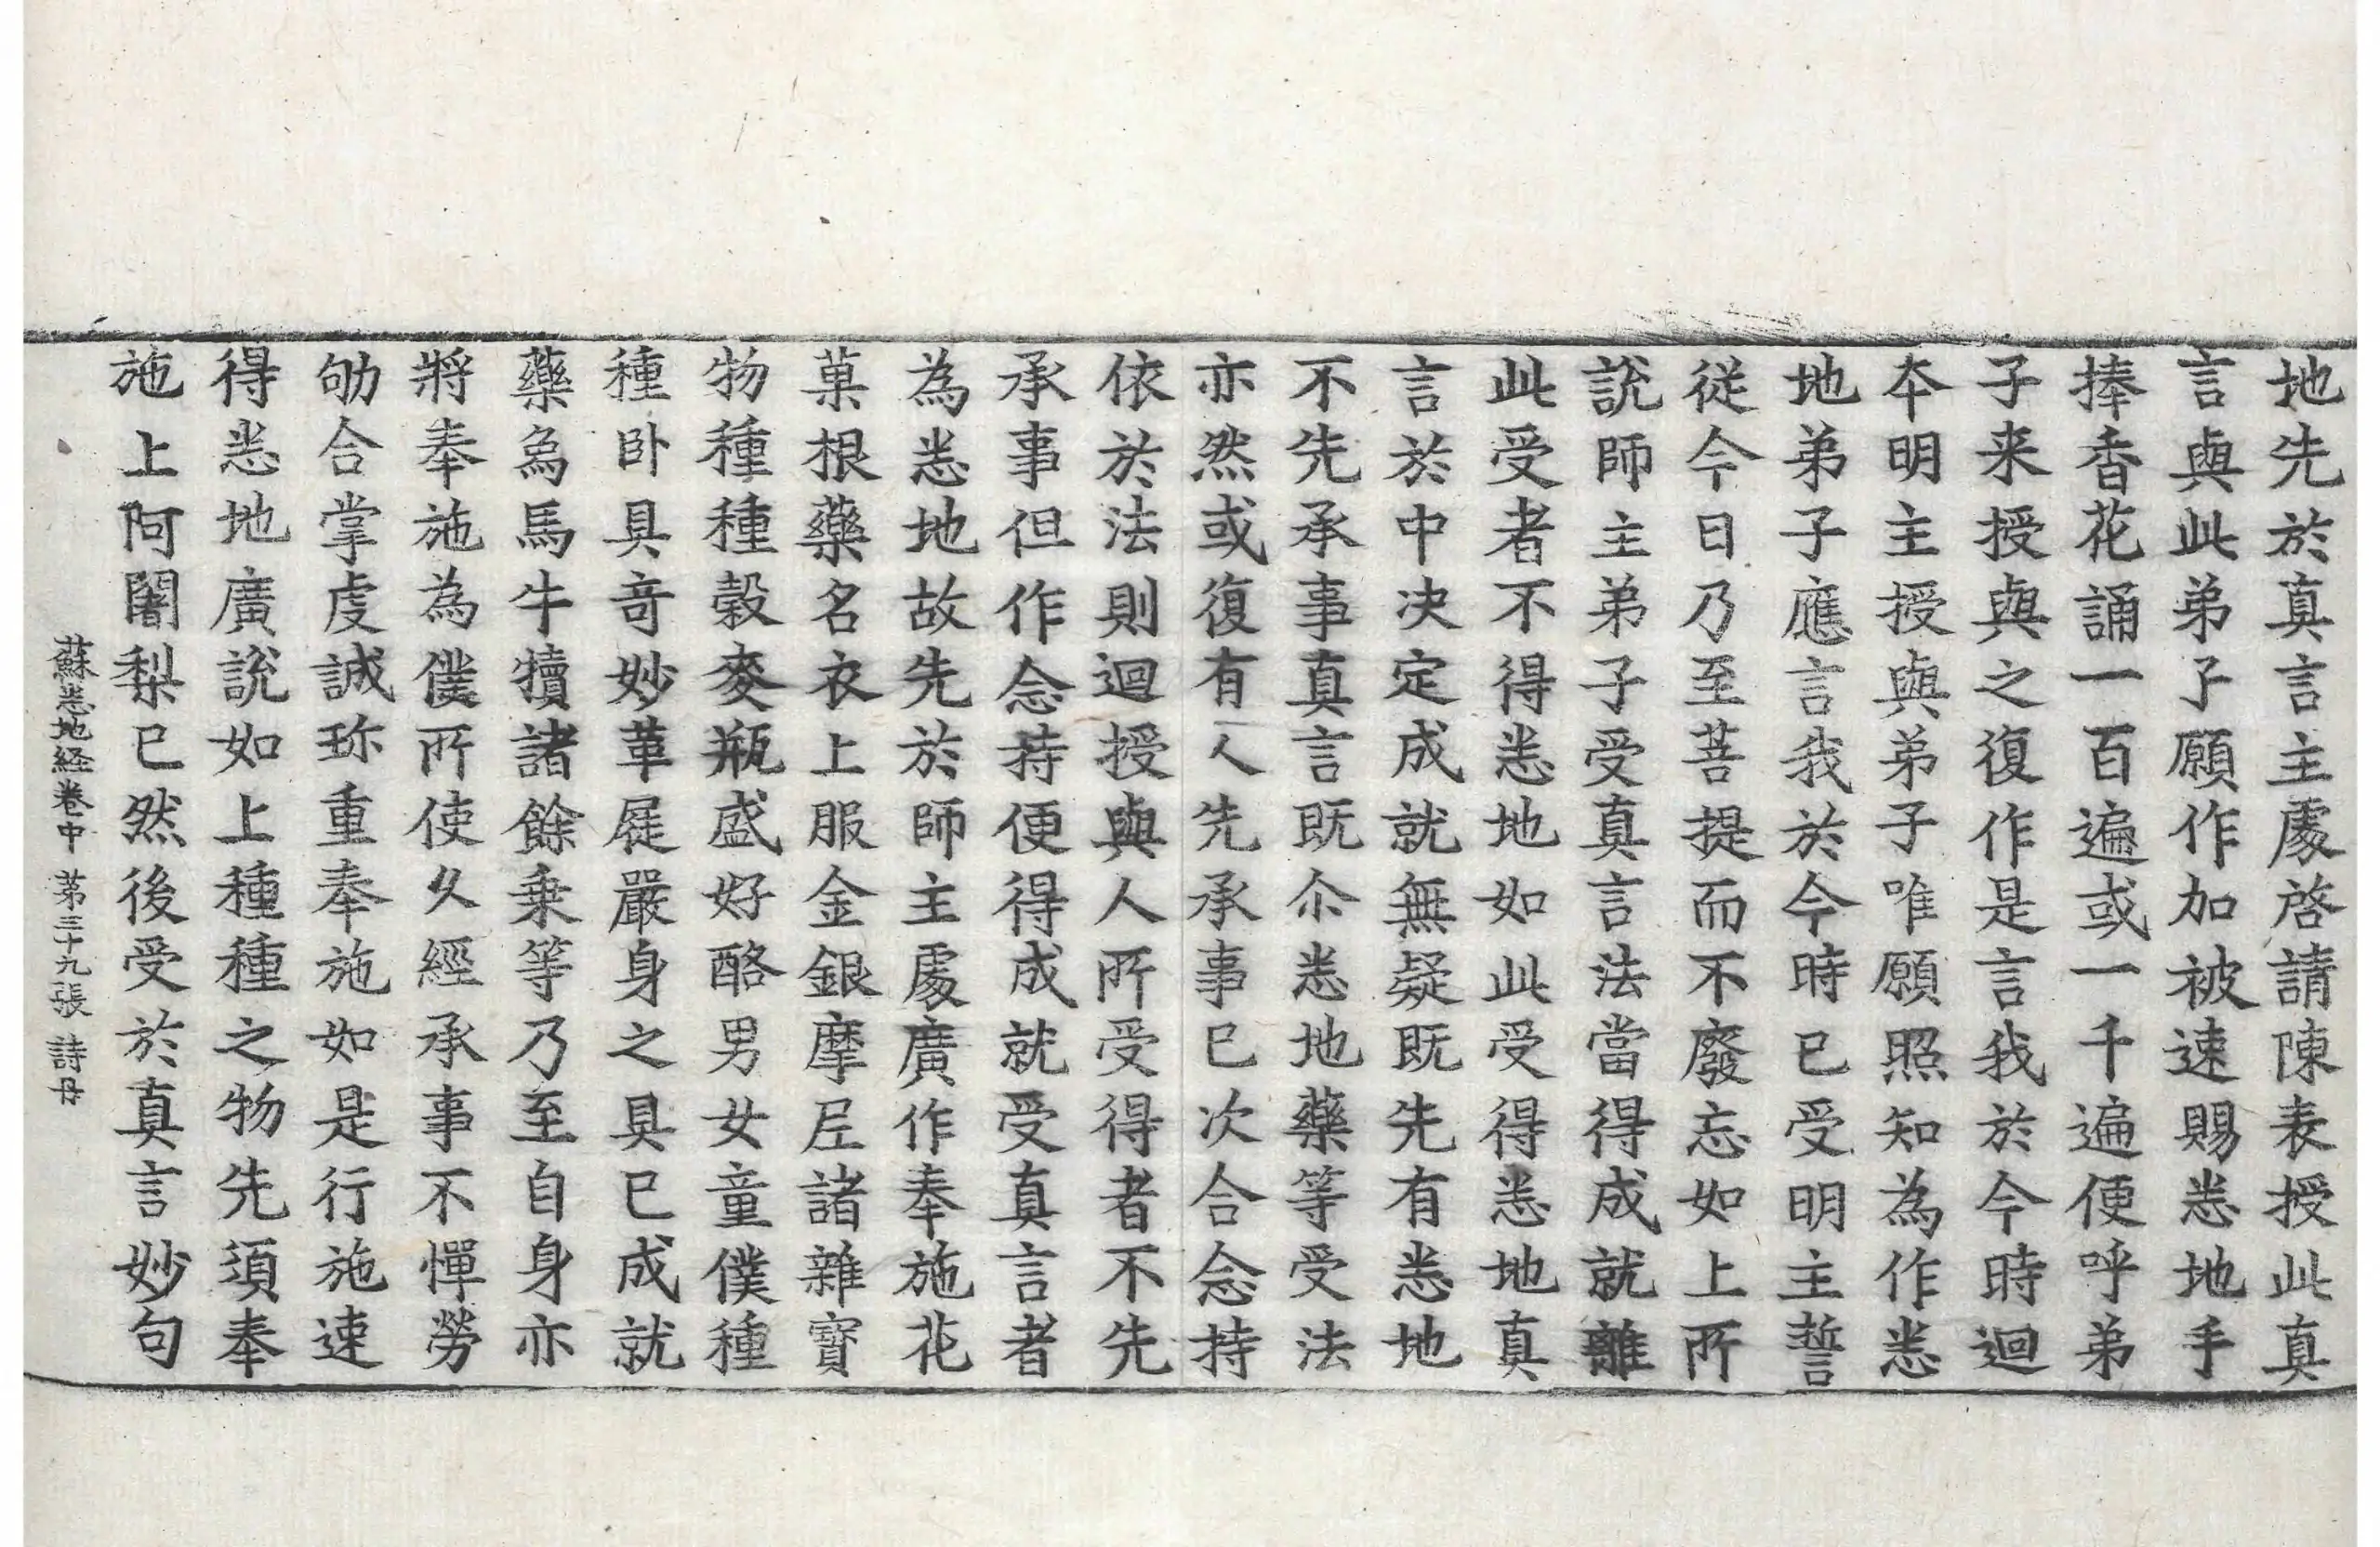 地先於真言主處啓請陳表授此真
言與此弟子願作加被速賜悉地手
捧香花誦一百遍或一千遍便呼弟
子来授與之復作是言我於今時迴
夲明主授與弟子唯願照知為作悉
地弟子應言我於今時已受明主誓
從今日乃至菩提而不廢忘如上所
說師主弟子受真言法當得成就離
此受者不得悉地如此受得悉地真
言於中決定成就無疑既先有悉地
不先承事真言既尒悉地藥等受法
亦然或復有人先承事已次合念持
依於法則迴授與人所受得者不先
承事但作念持便得成就受真言者
為悉地故先於師主處廣作奉施花
菓根藥名衣上服金銀摩尼諸雜寶
物種種穀麥瓶盛好酪男女童僕種
種卧具竒妙革屣嚴身之具已成就
藥為馬牛犢諸餘乗等乃至自身亦
將奉施為僕所使久經承事不憚勞
劬合掌虔誠珎重奉施如是行施速
得悉地廣說如上種種之物先湏奉
施上阿闍梨已然後受於真言妙句
蘇悉地経卷中 苐三十九張 詩母